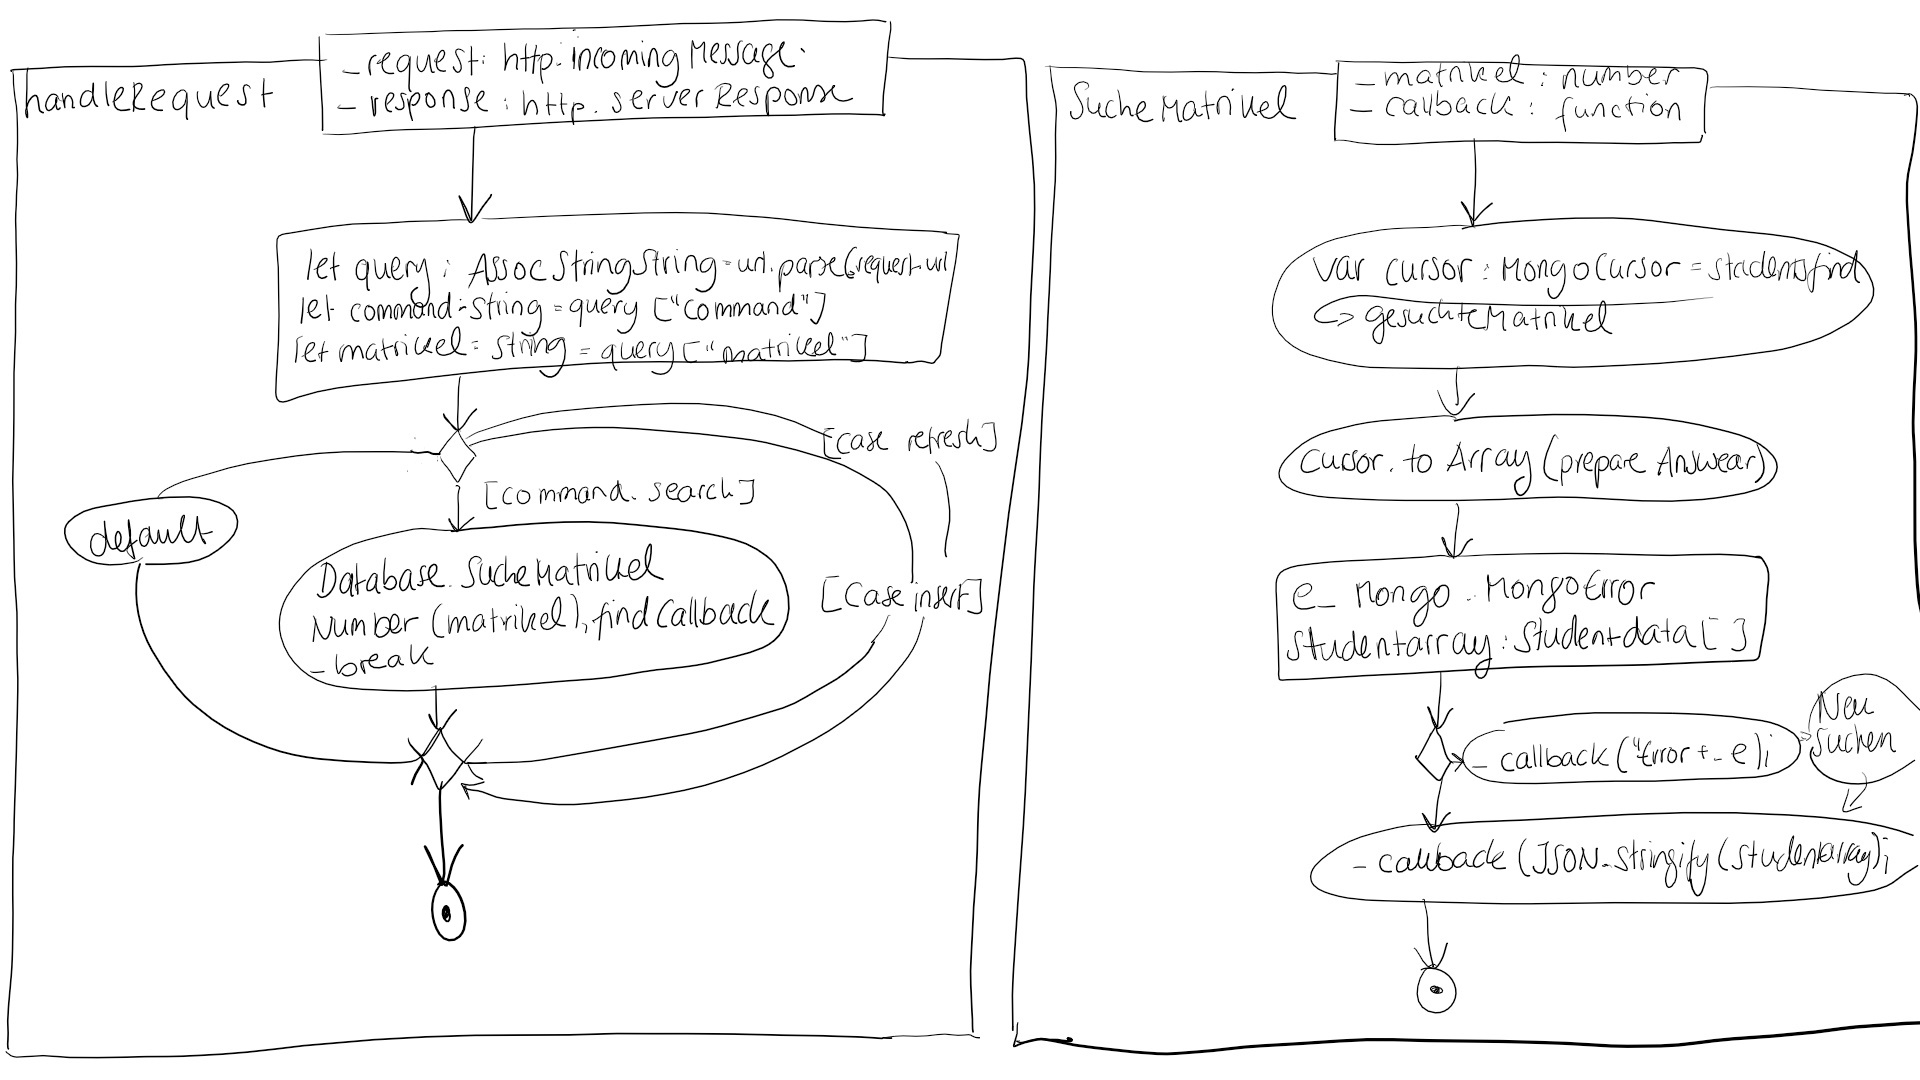 handleRequest
_ request: http.incoming Message.
- response: http. server Response
let query: AssocStringString = url.parse(request.url
let command: String = query ["Command"]
let matrikel: String = query ["matrikel"]
[case refresh]
[command. search]
default
Database. SucheMatrikel
Number (matrikel), find Callback
- break
[Case insert]
SucheMatrikel
- matrikel: number
- callback: function
var cursor: MongoCursor = students.find
↪ gesuchteMatrikel
Cursor. to Array (prepare Answear)
e_ Mongo. MongoError
Studentarray: Studentdata [ ]
- callback ("Error + _ e);
Neu
Suchen
- callback (JSON.Stringify (Studentarray);